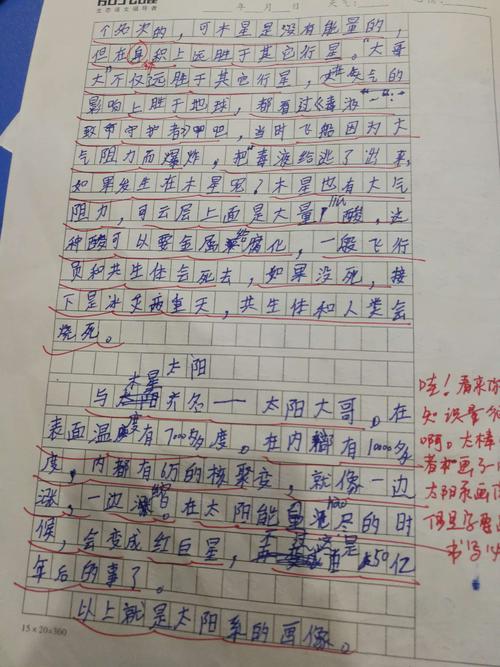 年 月 日
个名次的，可木星是没有能量的，
但在体积上远胜于其它行星。"大哥
大"不仅远胜于其它行星，
影响上胜于地球，都看过《毒液
守护者》吧，当时飞船因为大
气阻力而爆炸，把"毒液给逃了出来，
如果发生在木星呢？木星也有大气
阻力，可云层上面是大量酸，这
种酸可以要金属给腐化，一般飞行
员和共生体会死去，如果没死，接
下是冰火两重天，共生体和人类会
烧死。
太阳
与木星齐名——太阳大哥。在
表面温度有7000多度。在内部有10000多
度，内都有6万的核聚变，就像一边
涨，一边。在太阳能量的时
候，会变成红白星，不过这是50亿
年后的事了。
以上就是太阳系的画像。
15×20=300
哇！看来你
知识量
啊。太棒
着
太阳系画
但是字要
书写